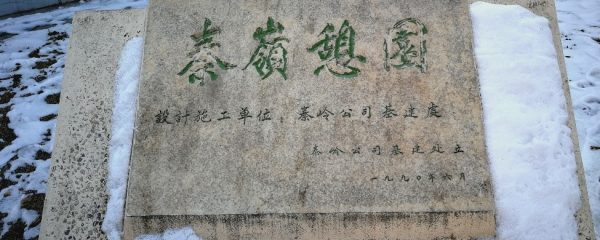 秦嶺憩園
設計施工単位：秦岭公司基建處
秦岭公司基建处立
一九九〇年六月